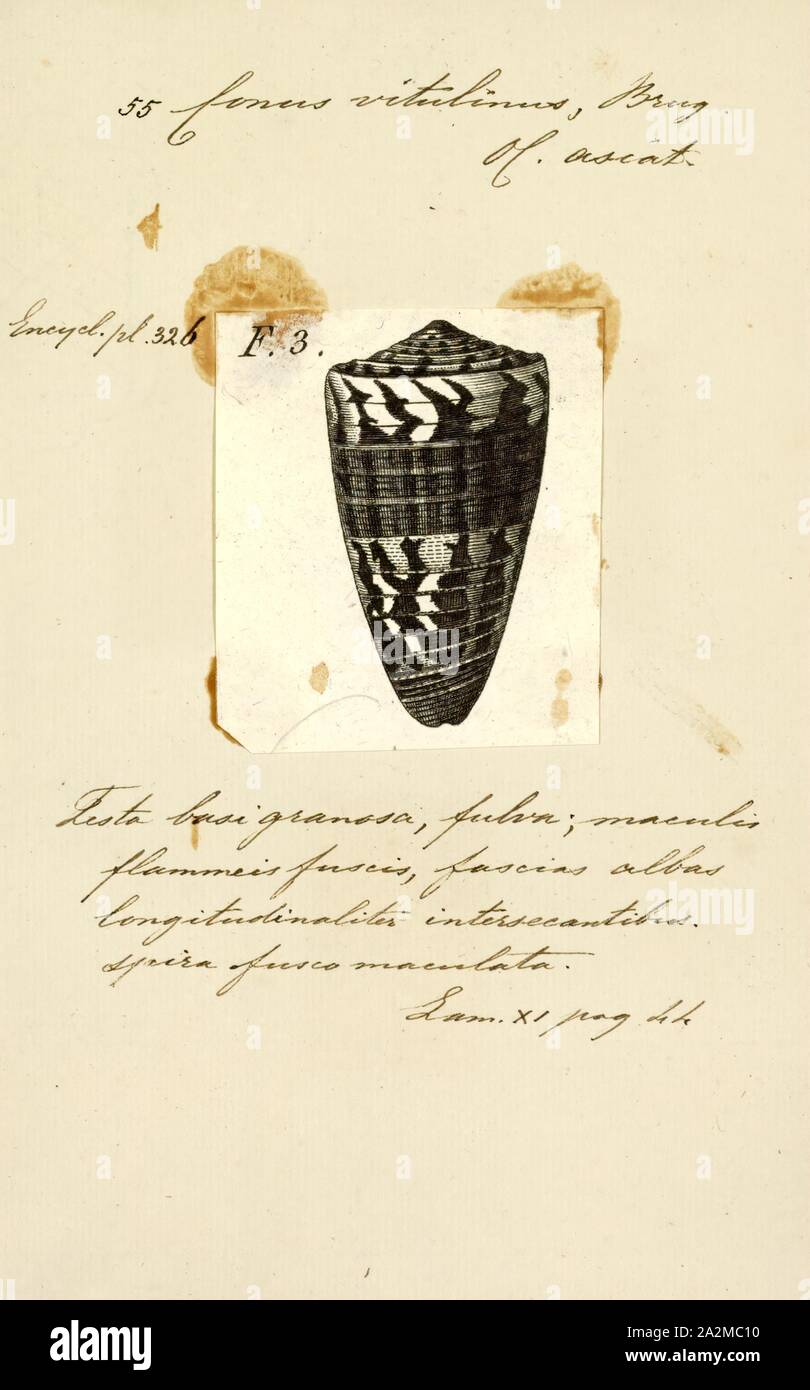 55 Conus vitulinus, Brug
Oc. asiat.
Encycl. pl. 326
F. 3.
Testa basi granosa, fulva; maculis
flammeis fuscis, fascias albas
longitudinaliter intersecantibus.
spira fusco maculata.
Lam. XI pag 44
alamy
Image ID: 2A2MC10
www.alamy.com